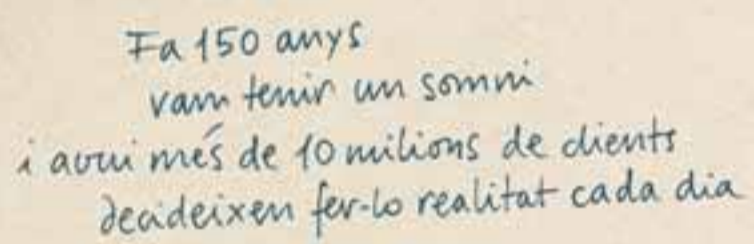 Fa 150 anys
vam tenir un somni
i avui més de 10 milions de clients
decideixen fer-lo realitat cada dia